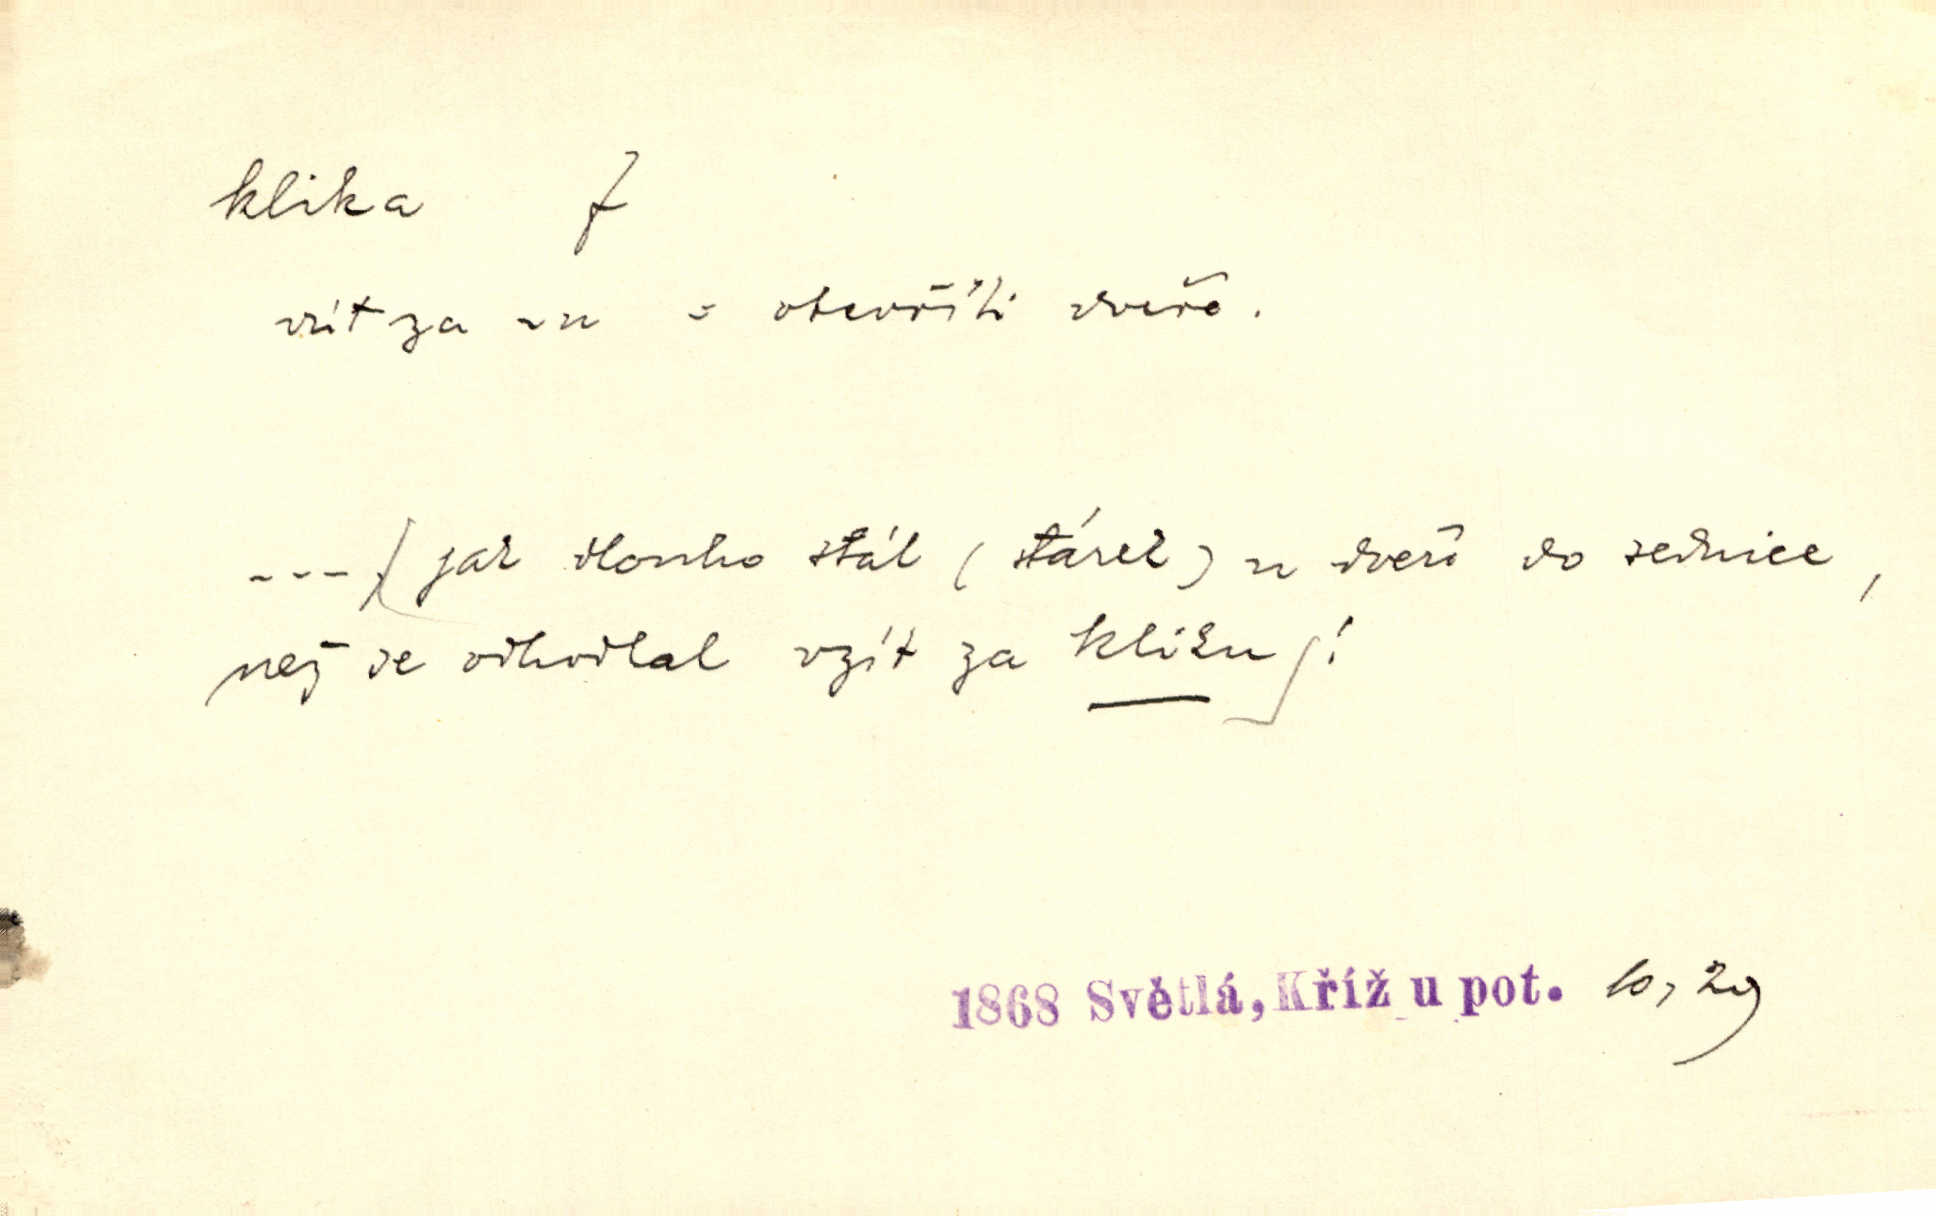 klika f
vzít za ~u = otevříti dveře.
---/ jak dlouho stál (stárek) u dveří do sednice,
než se odhodlal vzít za kliku /!
1868 Světlá, Kříž u pot. 10, 29